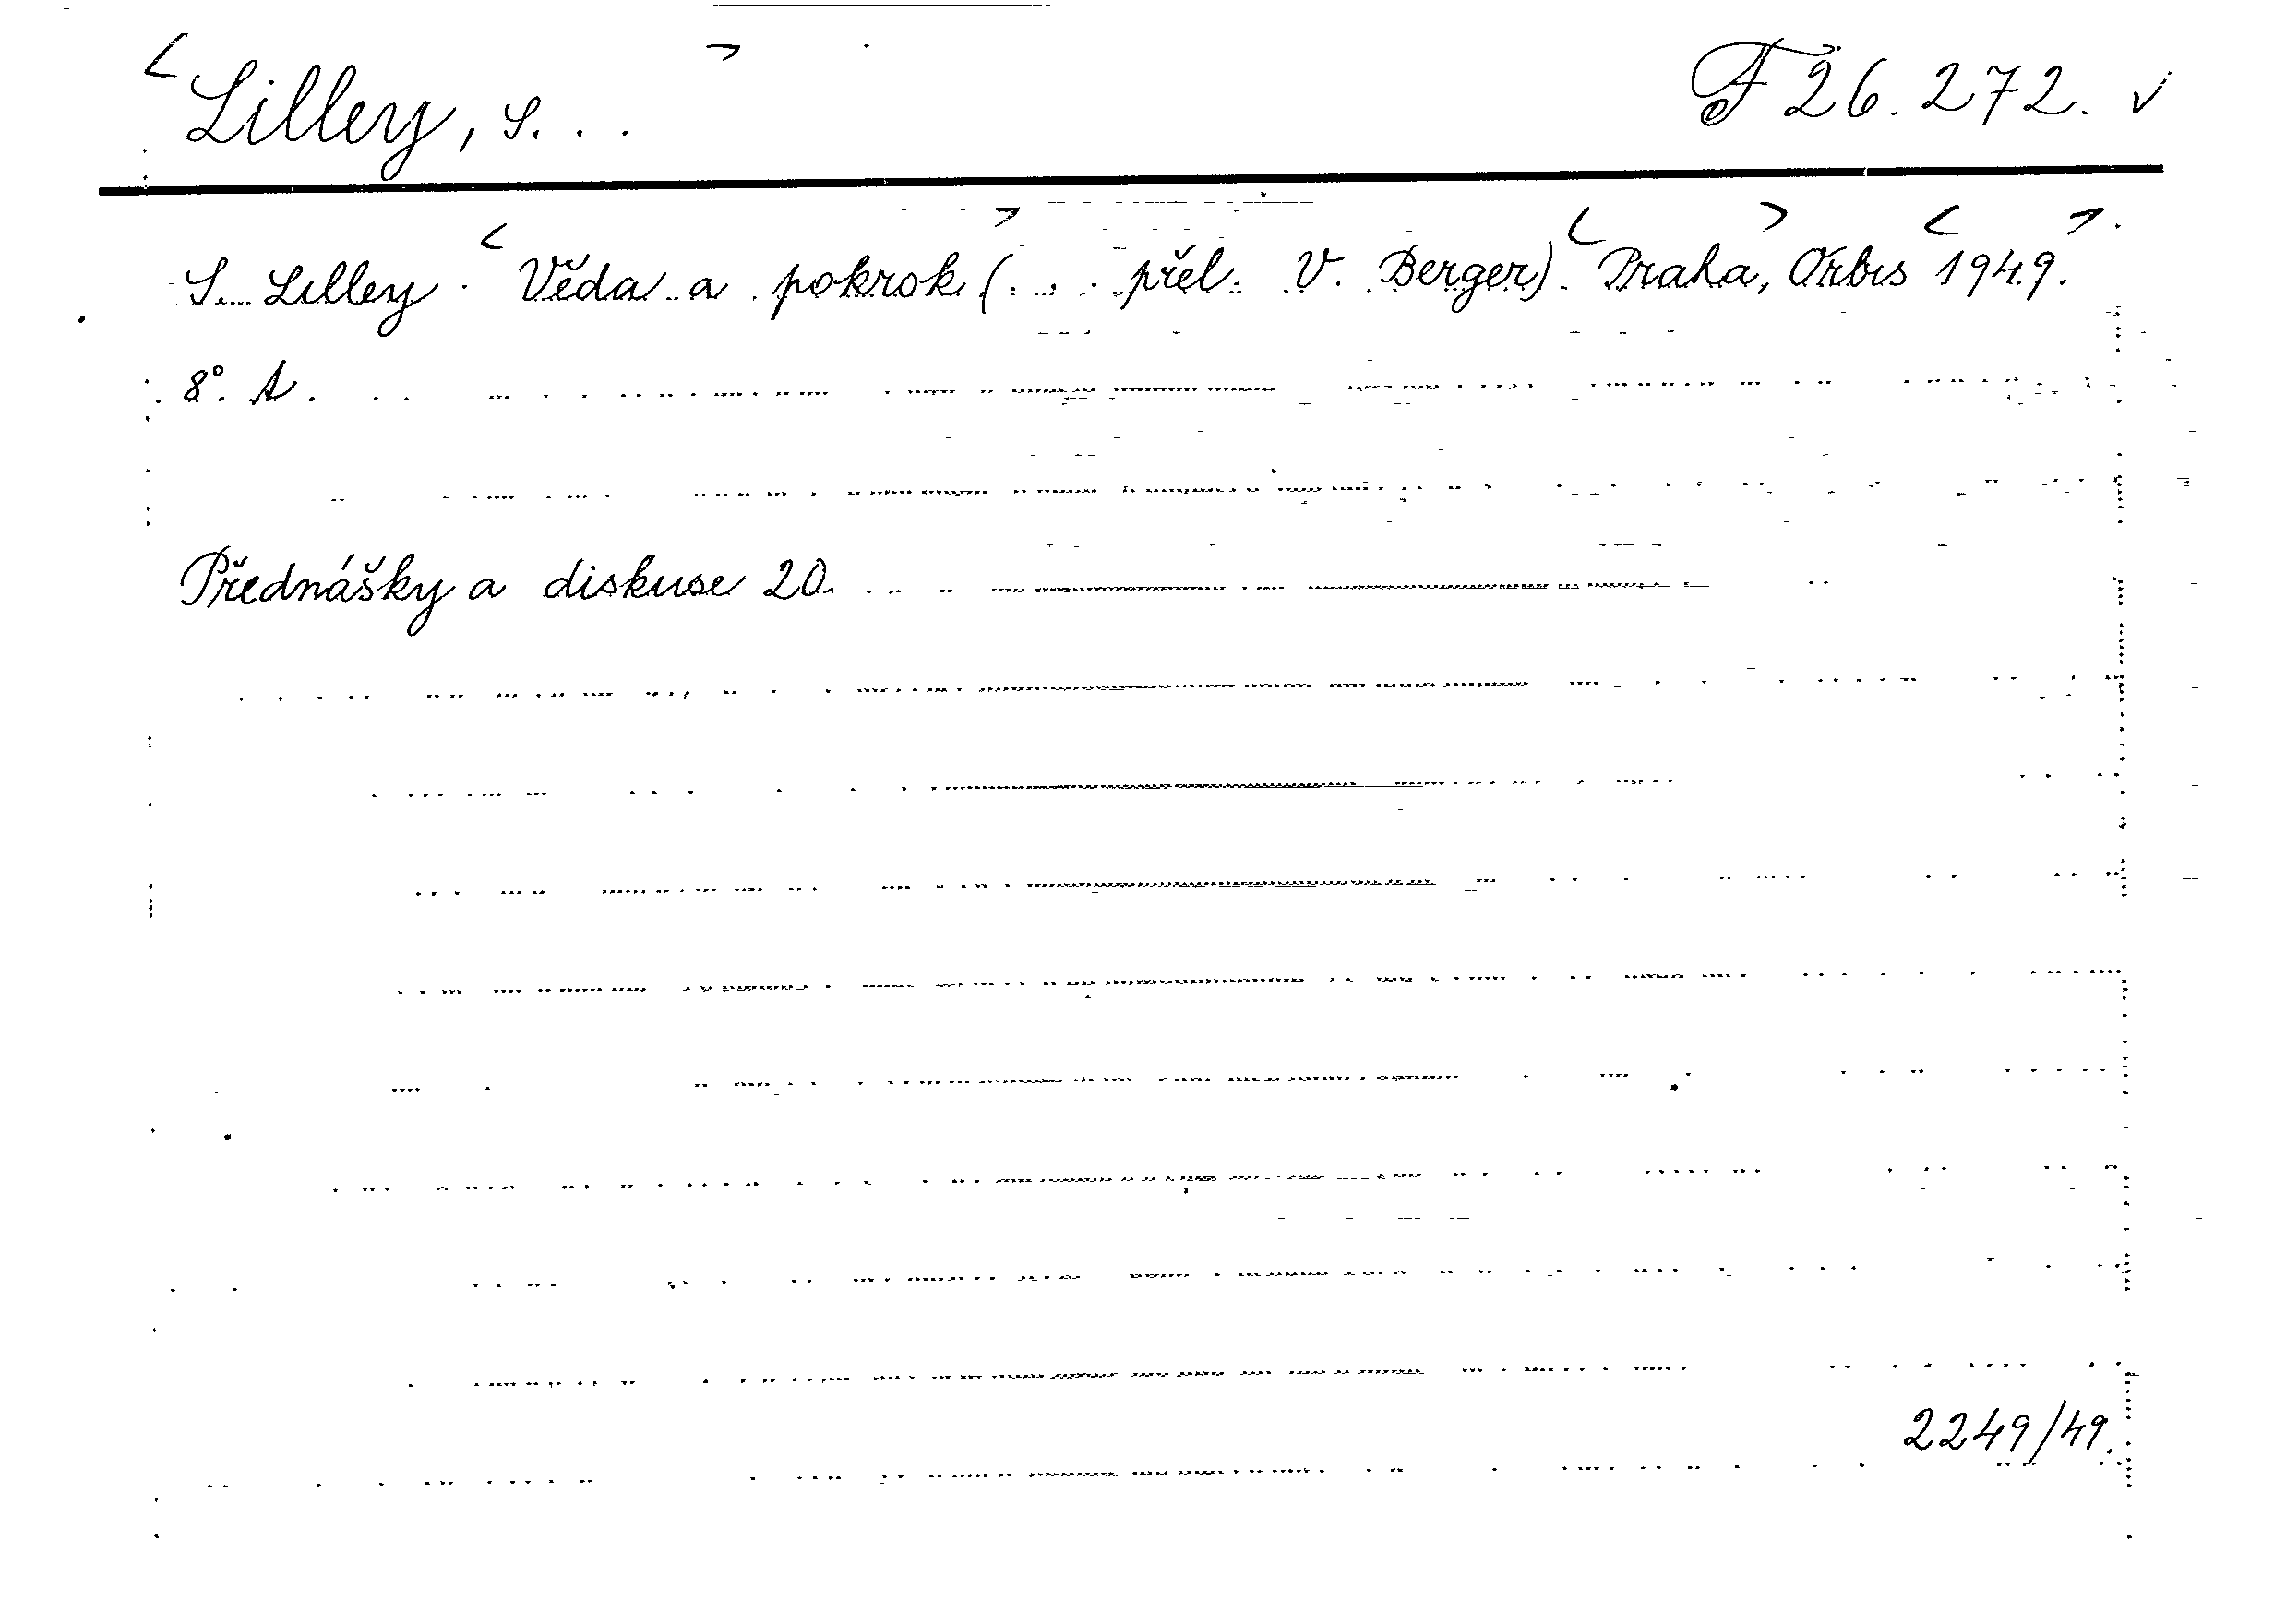 <Lilley, S. . .> F 26.272. v
S. Lilley. <Věda a pokrok> (. . . přel. V. Berger). <Praha>, Orbis <1949>.
8°. A.
Přednášky a diskuse 20.
2249/49.